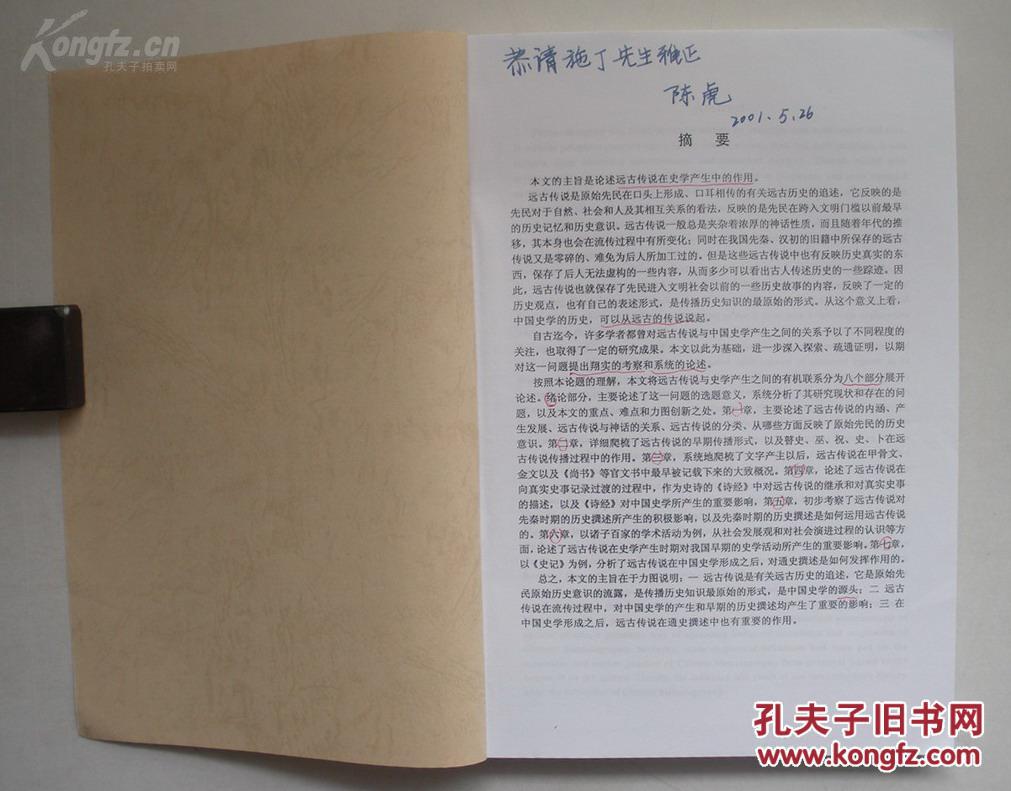 Kongfz.cn
孔夫子拍卖网
恭请施丁先生雅正
陈虎
2001.5.26
摘 要
本文的主旨是论述远古传说在史学产生中的作用。
远古传说是原始先民在口头上形成、口耳相传的有关远古历史的追述，它反映的是
先民对于自然、社会和人及其相互关系的看法，反映的是先民在跨入文明门槛以前最早
的历史记忆和历史意识。远古传说一般总是夹杂着浓厚的神话性质，而且随着年代的推
移，其本身也会在流传过程中有所变化；同时在我国先秦、汉初的旧籍中所保存的远古
传说又是零碎的、难免为后人所加工过的。但是这些远古传说中也有反映历史真实的东
西，保存了后人无法虚构的一些内容，从而多少可以看出古人传述历史的一些踪迹。因
此，远古传说也就保存了先民进入文明社会以前的一些历史故事的内容，反映了一定的
历史观点，也有自己的表述形式，是传播历史知识的最原始的形式。从这个意义上看，
中国史学的历史，可以从远古的传说说起。
自古迄今，许多学者都曾对远古传说与中国史学产生之间的关系予以了不同程度的
关注，也取得了一定的研究成果。本文以此为基础，进一步深入探索、疏通证明，以期
对这一问题提出翔实的考察和系统的论述。
按照本论题的理解，本文将远古传说与史学产生之间的有机联系分为八个部分展开
论述。绪论部分，主要论述了这一问题的选题意义，系统分析了其研究现状和存在的问
题，以及本文的重点、难点和力图创新之处。第一章，主要论述了远古传说的内涵、产
生发展、远古传说与神话的关系、远古传说的分类、从哪些方面反映了原始先民的历史
意识。第二章，详细爬梳了远古传说的早期传播形式，以及瞽史、巫、祝、史、卜在远
古传说传播过程中的作用。第三章，系统地爬梳了文字产生以后，远古传说在甲骨文、
金文以及《尚书》等官文书中最早被记载下来的大致概况。第四章，论述了远古传说在
向真实史事记录过渡的过程中，作为史诗的《诗经》中对远古传说的继承和对真实史事
的描述，以及《诗经》对中国史学所产生的重要影响，第五章，初步考察了远古传说对
先秦时期的历史撰述所产生的积极影响，以及先秦时期的历史撰述是如何运用远古传说
的。第六章，以诸子百家的学术活动为例，从社会发展观和对社会演进过程的认识等方
面，论述了远古传说在史学产生时期对我国早期的史学活动所产生的重要影响。第七章，
以《史记》为例，分析了远古传说在中国史学形成之后，对通史撰述是如何发挥作用的。
总之，本文的主旨在于力图说明：一 远古传说是有关远古历史的追述，它是原始先
民原始历史意识的流露，是传播历史知识最原始的形式，是中国史学的源头；二 远古
传说在流传过程中，对中国史学的产生和早期的历史撰述均产生了重要的影响；三 在
中国史学形成之后，远古传说在通史撰述中也有重要的作用。
孔夫子旧书网
www.kongfz.com